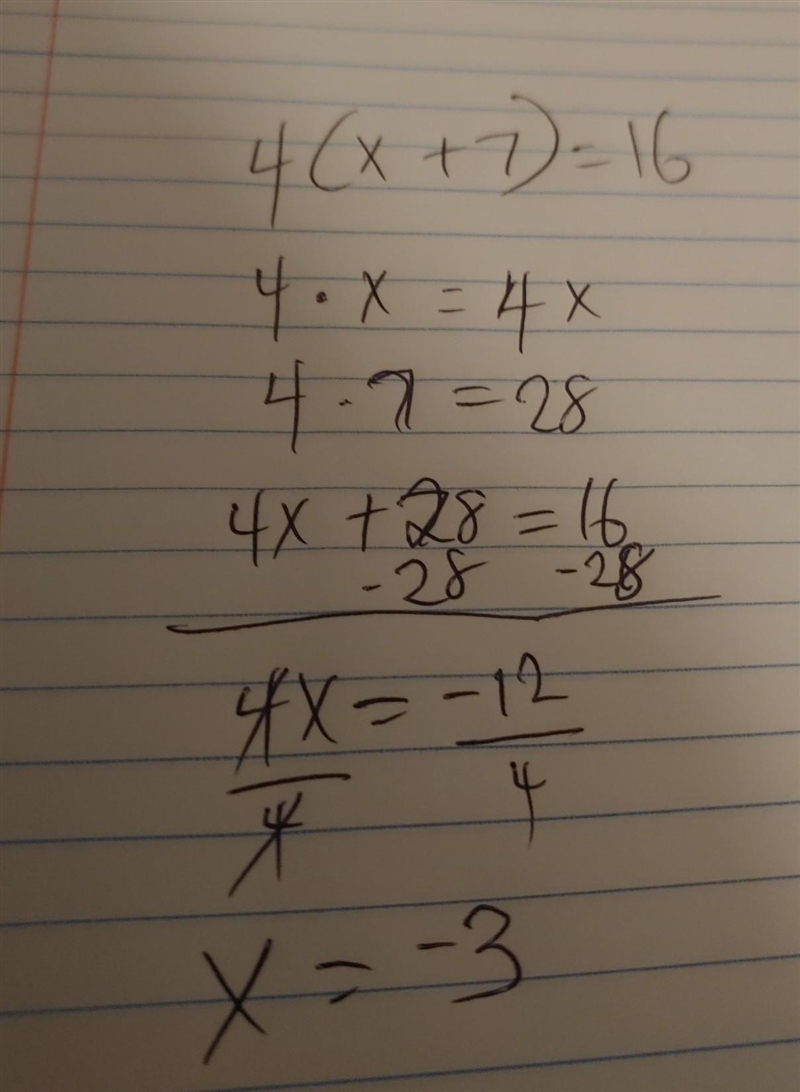 4(x + 7) = 16
4 · x = 4x
4 · 7 = 28
4x + 28 = 16
- 28 - 28
4x = -12
4 4
x = -3